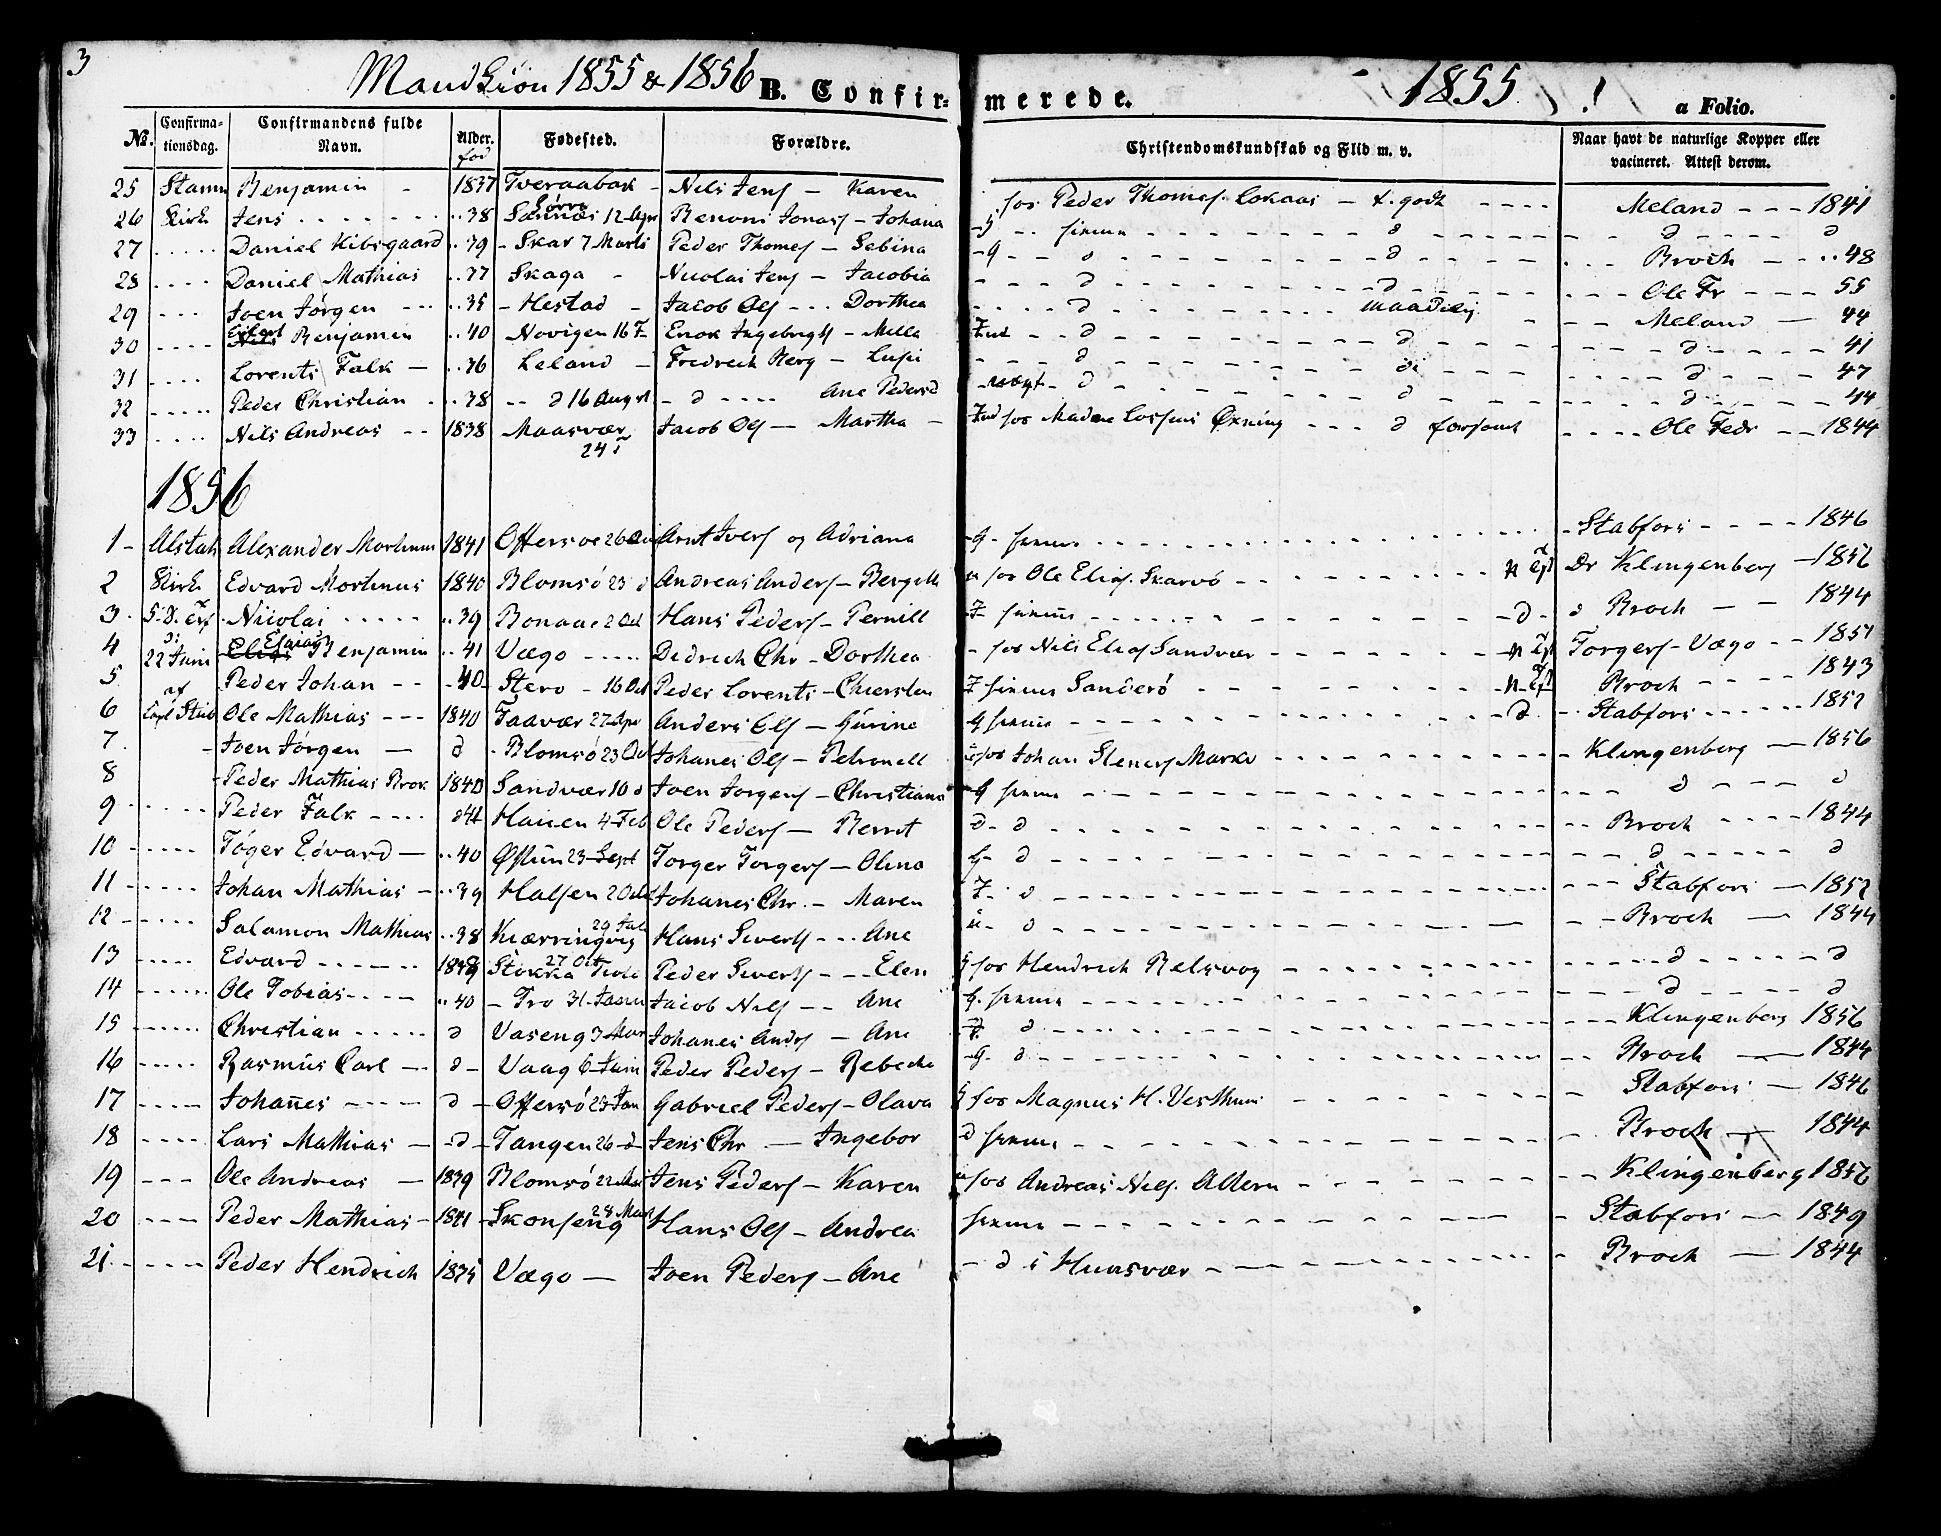 3
Mandkiön 1855 & 1856 B. Confir-merede. 1855 a Folio.
No. Confirma-tionsdag. Confirmandens fulde Navn. Alder. fød Fødested. Forældre. Christendomskundskab og Flid m. v. Naar havt de naturlige Kopper eller vacineret. Attest derom.
25 Stamn Benjamin - 1837 Tveraabak - Nils Jens - Karen fos Peder Thomes. Lokaas - t. godt ---- Meland --- 1841
26 Kirk Jens ....... .. 38 Sannæs 12 Apr Benoni Jonas - Johana d d d
27 ..... Daniel Hibsgaard .. 39 - Skar 7 Marts Peder Thomes - Sebina d d Broch - - .. 48
28 .... Daniel Mathias .. 37 Skaga - Nicolai Jens - Jacobia d d --- Ole Fr --- 55
29 ... Joen Jørgen --- .. 35 - Hestad - Jacob Ols --- Dorthea d maadelig - - Meland - 44
30 .... Eilert Benjamin .. 40 Novigen 16 F Enok Ingebrigts - Milla d d d 41
31 .... Lorents Falk - .. 36 Leland - Fredrech Berg - d d d 47
32 ..... Peder Christian .. 38 -- d 16 August - d .... Ane Pedersd d d d 44
33 .... Nils Andreas -- 1838 Maasvær 24 Jacob Ols - Martha - fos Øxning --- d forsømt .... Ole Fedr -- 1844
1856
1 - Alstah Alexander Mortinus 1841 Offersøe 26 Arnt Ivers og Adriana -G- - Stabfors ---- 1846
2 Kirk Edvard Mortinus 1840 Blomsö 23 d Andreas Anders - Bergith fos Ole Elias. Skarvö Dr Klingenberg - 1856
3. 5. S. Nicolai ..... .. 39 Bonaae 2 Oct Hans Peders - Pernill -d- d Broch - - 1844
4 22 Juni Elias Benjamin .. 41 Vægo ..... Didrich Chr - Dorthea - fos Nils Elias Sandvær Torgers - Vægo -- 1851
5 af Peder Johan -- - 40 Stero - 16 Oct Peder Lorents - Chiersten Sanderö Broch ---- 1843
6 Ole Mathias --- 1840 Faavær 27 Apr Anders Ols - Gurine -d- Stabfors ------ 1852
7. - Joen Jörgen - d - Blomsö 23 Oct Johanes Ols - Petronell fos Johan Steners Marko Klingenberg - 1856
8 Peder Mathias Brok 1840 Sandvær 10 d Joen Jorgens - Christiana G d --- d
9 ..... Peder Falk ---- d 41 Hausen 4 Feb Ole Peders - Berret d- d -- Broch ---- 1844
10 ..... Töger Edvard - .. 40 Øxtun 23 Sept Torger Torgers - Olina G- d d d
11 ..... Johan Mathias - .. 39 Halsen 2 Oct Johanes Chr. - Maren d --- Stabfors - 1852
12 ..... Salamon Mathias .. 38 Kiærringvig 29 Hans Siverts --- Ane d - - Broch - 1844
13 ..... Edvard ------ Stokka 27 Oct Peder Siverts --- Elen fos Hendrich Belsvog d d
14 ..... Ole Tobias ---- .. 40 - Tro 31 Januar Jacob Nils -- Ane d d
15 ..... Christian ..... d Vaseng 3 Mar Johanes Anders - Ane d Klingenberg 1856
16 ..... Rasmus Carl -- d - Vaag 6 Juni Peder Peders - Rebecka -G- d -- Broch - 1844
17 .... Johañes ---- d - Offersö 23 Jan Gabriel Peders - Olava fos Magnus H. Vesthun Stabfors - 1846
18 .... Lars Mathias - -d- Tangen 26 d Jens Chr - Ingebor d Broch - 1844
19 --- Ole Andreas - 1839 Blomsö 22 Jens Peders - Karen fos Andreas Nils. Altern Klingenberg 1856
20 --- Peder Mathias - 1841 - Skonseng 28 Mar Hans Ols - Andrea - Stabfors - 1849
21. ---- Peder Hendrich 1835 Vægo - Joen Peders - Ane - d i Husvær Broch - 1844